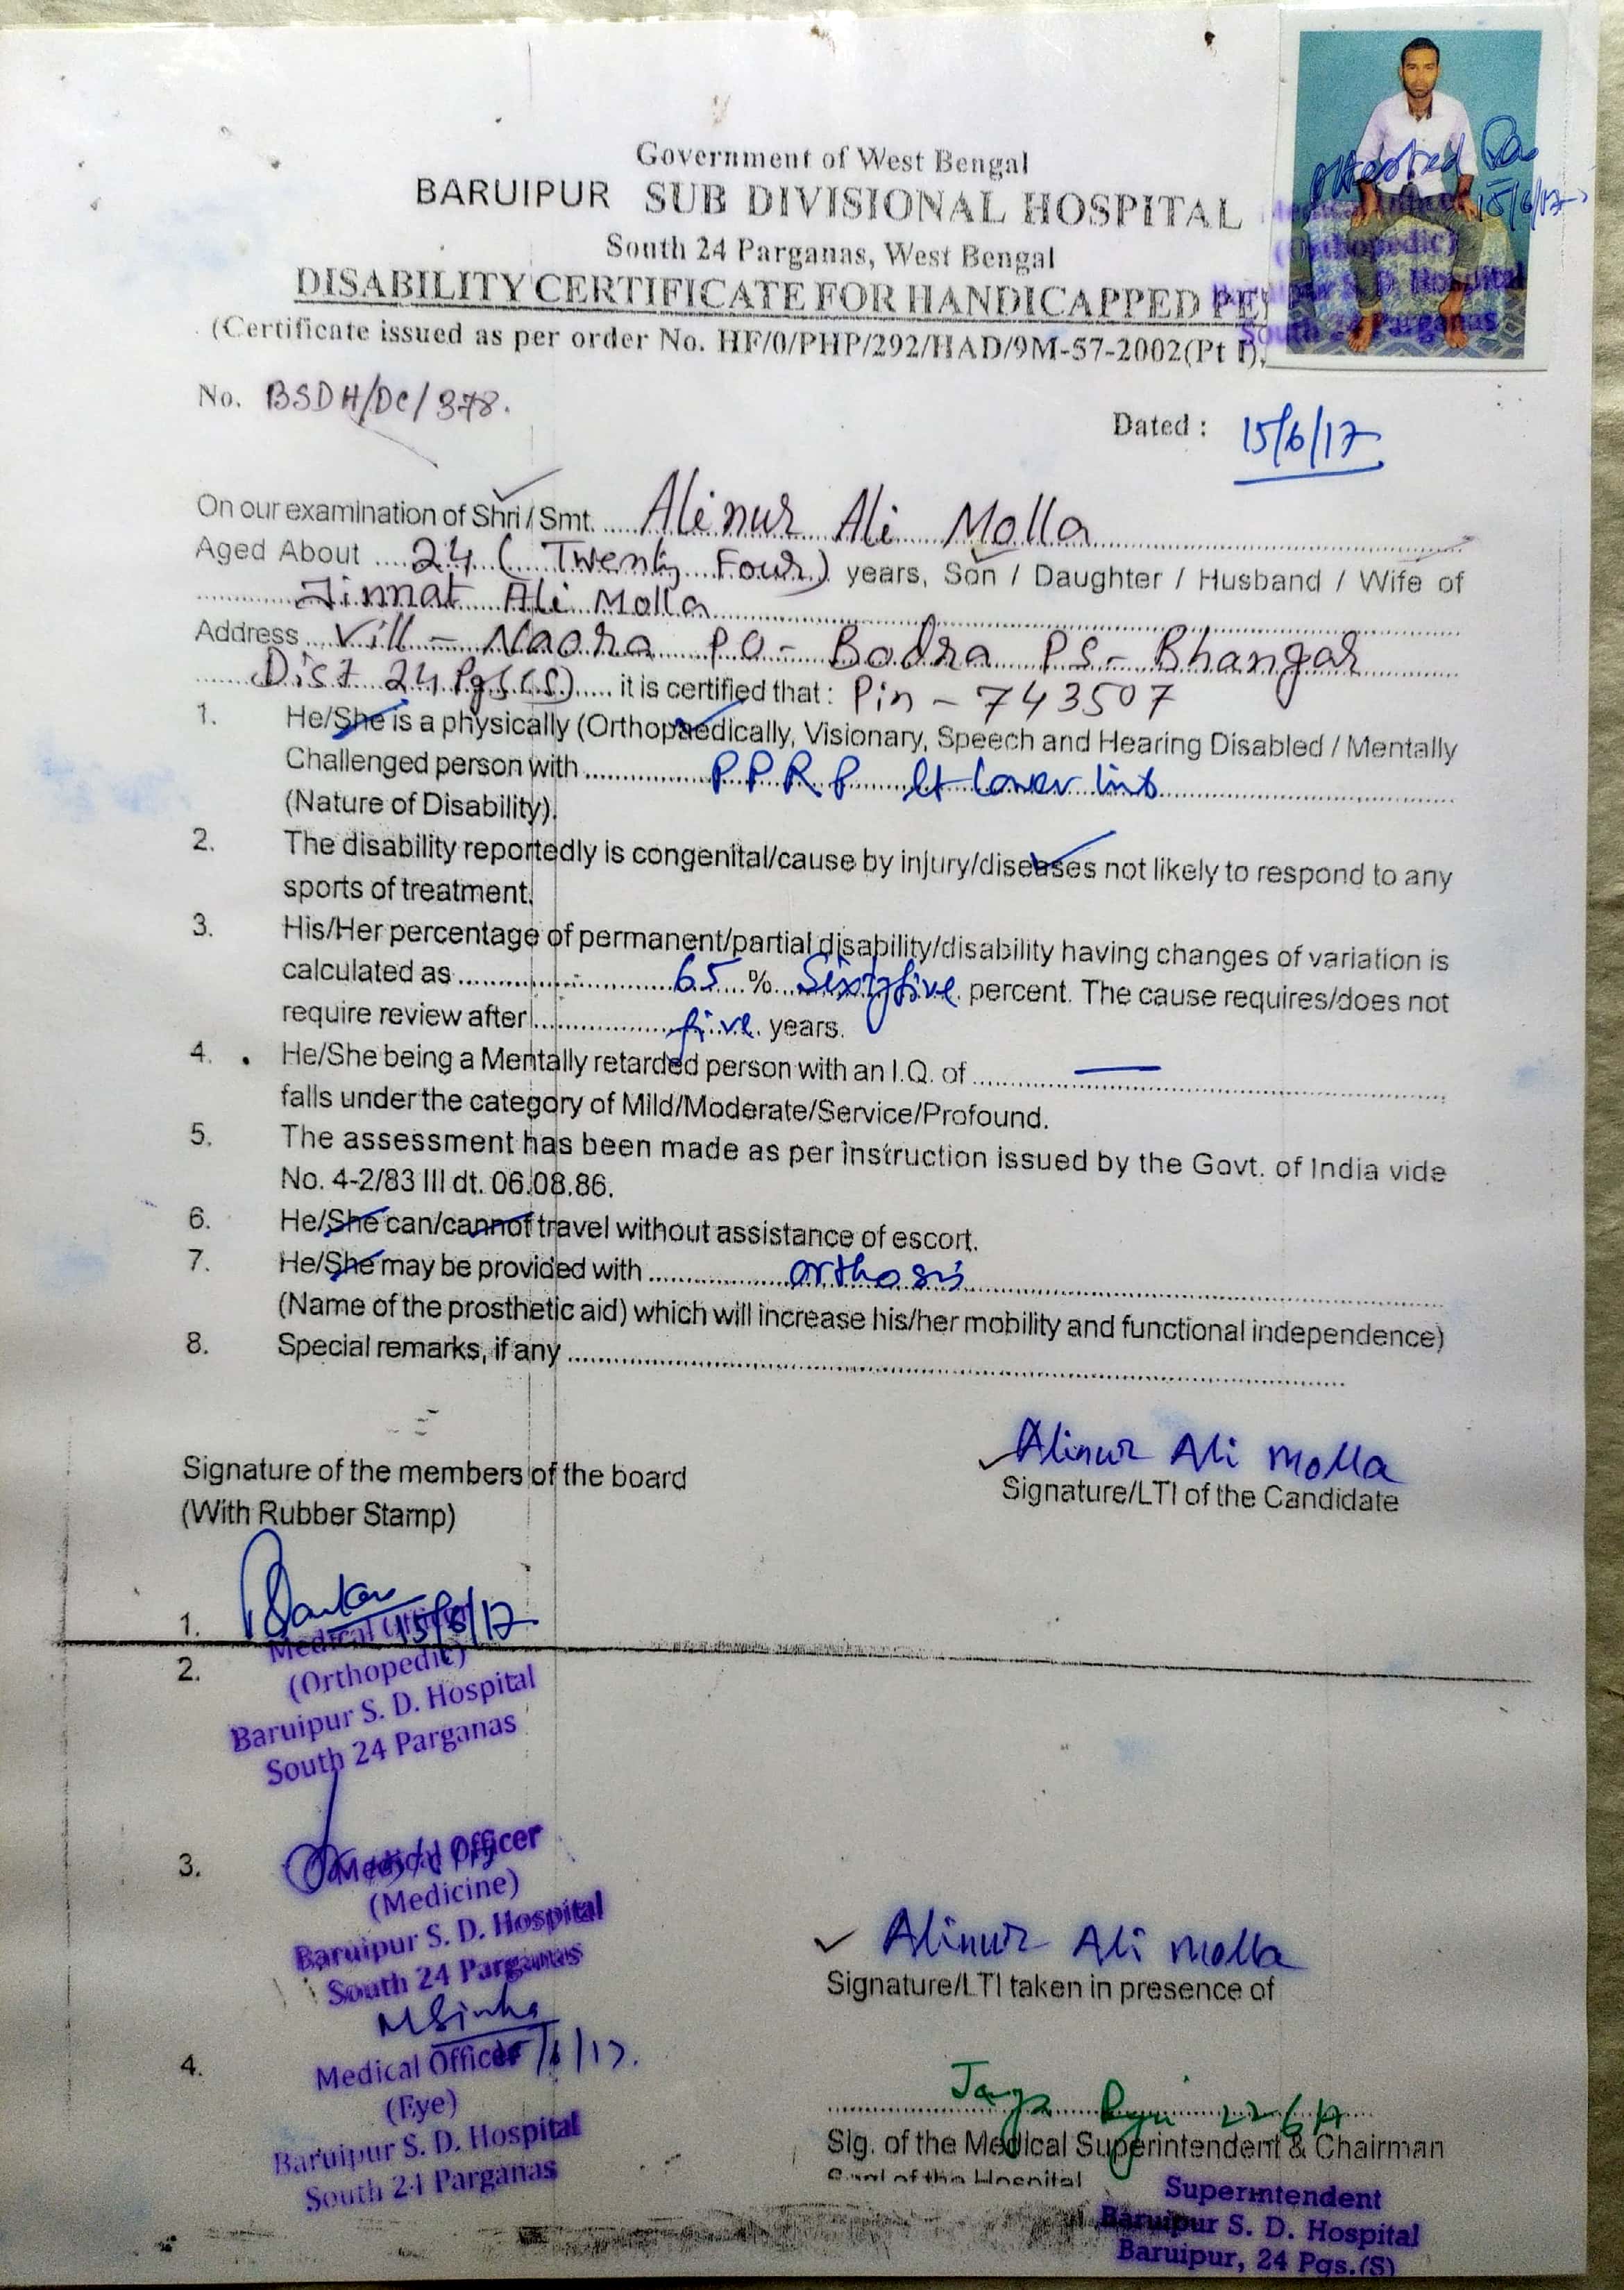 Government of West Bengal
BARUIPUR SUB DIVISIONAL HOSPITAL
South 24 Parganas, West Bengal
DISABILITY CERTIFICATE FOR HANDICAPPED PE
(Certificate issued as per order No. HF/0/PHP/292/HAD/9M-57-2002(Pt I),
Attested
15/6/17
Medical Officer
(Orthopedic)
Baruipur S. D. Hospital
South 24 Parganas
No. BSDH/DC/378.
Dated : 15/6/17
On our examination of Shri / Smt. Alinur Ali Molla
Aged About 24 ( Twenty Four) years, Son / Daughter / Husband / Wife of
Jinnat Ali Molla
Address Vill - Naora PO - Bodra PS - Bhangar
Dist 24 Pgs(S) it is certified that : Pin - 743507
1. He/She is a physically (Orthopaedically, Visionary, Speech and Hearing Disabled / Mentally
Challenged person with PPRP lt lower limb
(Nature of Disability).
2. The disability reportedly is congenital/cause by injury/diseases not likely to respond to any
sports of treatment.
3. His/Her percentage of permanent/partial disability/disability having changes of variation is
calculated as 65 % Sixtyfive percent. The cause requires/does not
require review after five years.
4. He/She being a Mentally retarded person with an I.Q. of —
falls under the category of Mild/Moderate/Service/Profound.
5. The assessment has been made as per instruction issued by the Govt. of India vide
No. 4-2/83 III dt. 06.08.86.
6. He/She can/cannot travel without assistance of escort.
7. He/She may be provided with orthosis
(Name of the prosthetic aid) which will increase his/her mobility and functional independence)
8. Special remarks, if any
Alinur Ali Molla
Signature of the members of the board
Signature/LTI of the Candidate
(With Rubber Stamp)
1. 15/6/17
Medical Officer
2. (Orthopedic)
Baruipur S. D. Hospital
South 24 Parganas
3. Medical Officer
(Medicine)
Baruipur S. D. Hospital
South 24 Parganas
Alinur Ali Molla
Signature/LTI taken in presence of
MSinha
4. Medical Officer
(Eye)
Baruipur S. D. Hospital
South 24 Parganas
22/6/17
Sig. of the Medical Superintendent & Chairman
Seal of the Hospital
Superintendent
Baruipur S. D. Hospital
Baruipur, 24 Pgs.(S)